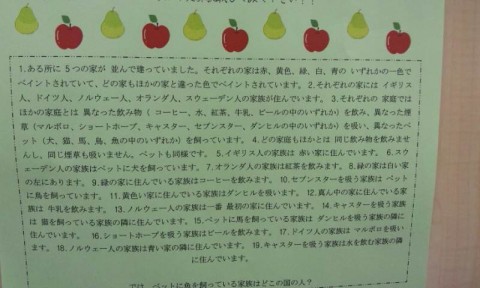 1.ある所に 5つの家が 並んで建っていました。それぞれの家は赤、黄色、緑、白、青の いずれかの一色で
ペイントされていて、どの家もほかの家と違った色でペイントされています。 2.それぞれの家には イギリス
人、ドイツ人、ノルウェー人、オランダ人、スウェーデン人の家族が住んでいます。 3.それぞれの 家庭では
ほかの家庭とは 異なった飲み物( コーヒー、水、紅茶、牛乳、ビールの中のいずれか)を飲み、異なった煙
草 (マルボロ、ショートホープ、キャスター、セブンスター、ダンヒルの中のいずれか)を吸い、異なったペ
ット (犬、猫、馬、鳥、魚の中のいずれか)を飼っています。 4.どの家庭もほかとは 同じ飲み物を飲みませ
んし、同じ煙草も吸いません。ペットも同様です。 5.イギリス人の家族は 赤い家に住んでいます。 6.スウ
ェーデン人の家族はペットに犬を飼っています。 7.オランダ人の家族は紅茶を飲みます。 8.緑の家は白い家
の左にあります。 9.緑の家に住んでいる家族はコーヒーを飲みます。 10.セブンスターを吸う家族は ペット
に鳥を飼っています。 11.黄色い家に住んでいる家族はダンヒルを吸います。 12.真ん中の家に住んでいる家
族は 牛乳を飲みます。 13.ノルウェー人の家族は一番 最初の家に住んでいます。 14.キャスターを吸う家族
は 猫を飼っている家族の隣に住んでいます。 15.ペットに馬を飼っている家族は ダンヒルを吸う家族の隣に
住んでいます。 16.ショートホープを吸う家族はビールを飲みます。 17.ドイツ人の家族は マルボロを吸い
ます。 18.ノルウェー人の家族は青い家の隣に住んでいます。 19.キャスターを吸う家族は水を飲む家族の隣
に住んでいます。
では、ペットに魚を飼っている家族はどこの国の人?